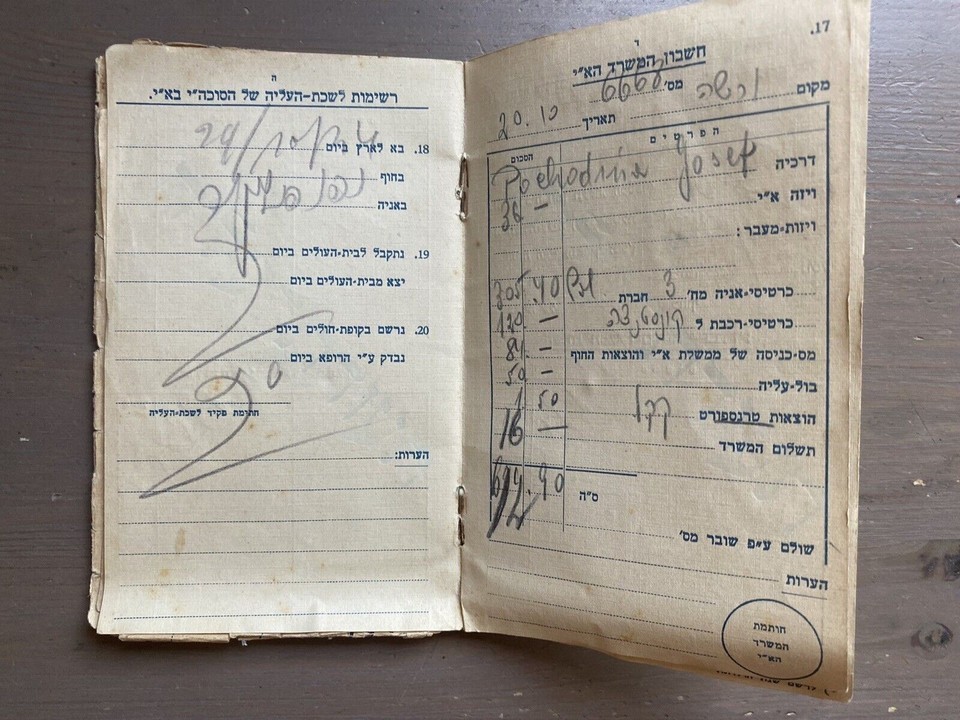 17.
י
חשבון המשרד הא"י
מקום ורשה מס'
20.10 תאריך
הפרטים הסכום
דרכיה Josef
ויזה א"י 36 —
ויזות-מעבר:
כרטיסי-אניה מח' 3 חברת 305.40
כרטיסי-רכבת ל קונסטנצה 120 —
מס-כניסה של ממשלת א"י והוצאות החוף 84 —
בול-עליה 50 —
הוצאות טרנספורט קקל 1 50
תשלום המשרד 16 —
ס"ה 612.90
שולם ע"פ שובר מס'
הערות
חותמת
המשרד
הא"י
ה
רשימות לשכת-העליה של הסוכה"י בא"י.
18. בא לארץ ביום
בחוף
באניה
19. נתקבל לבית-העולים ביום
יצא מבית-העולים ביום
20. נרשם בקופת-חולים ביום
נבדק ע"י הרופא ביום
חתימת פקיד לשכת-העליה
הערות: